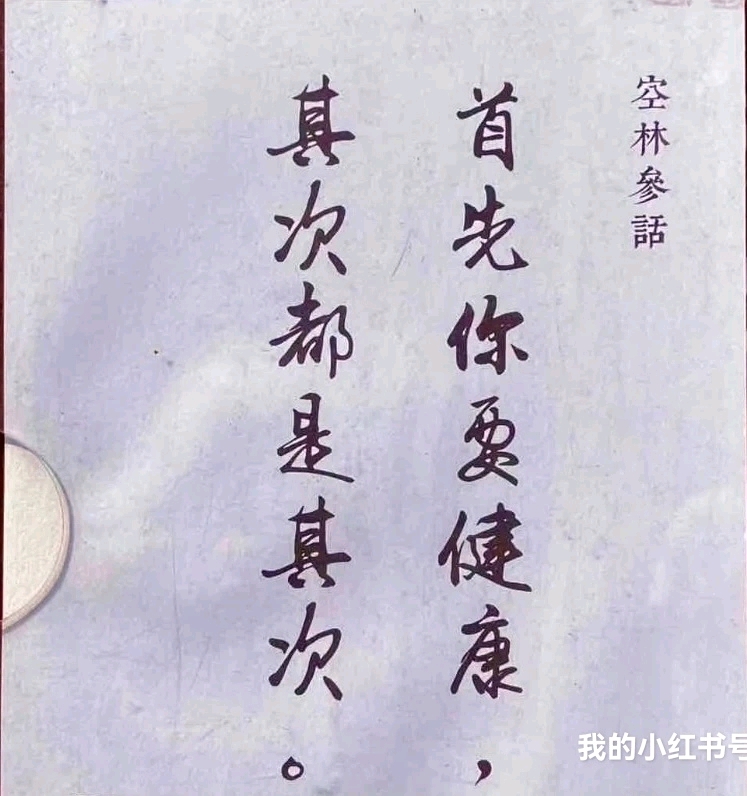 空林參話
首先你要健康，
其次都是其次。
我的小红书号